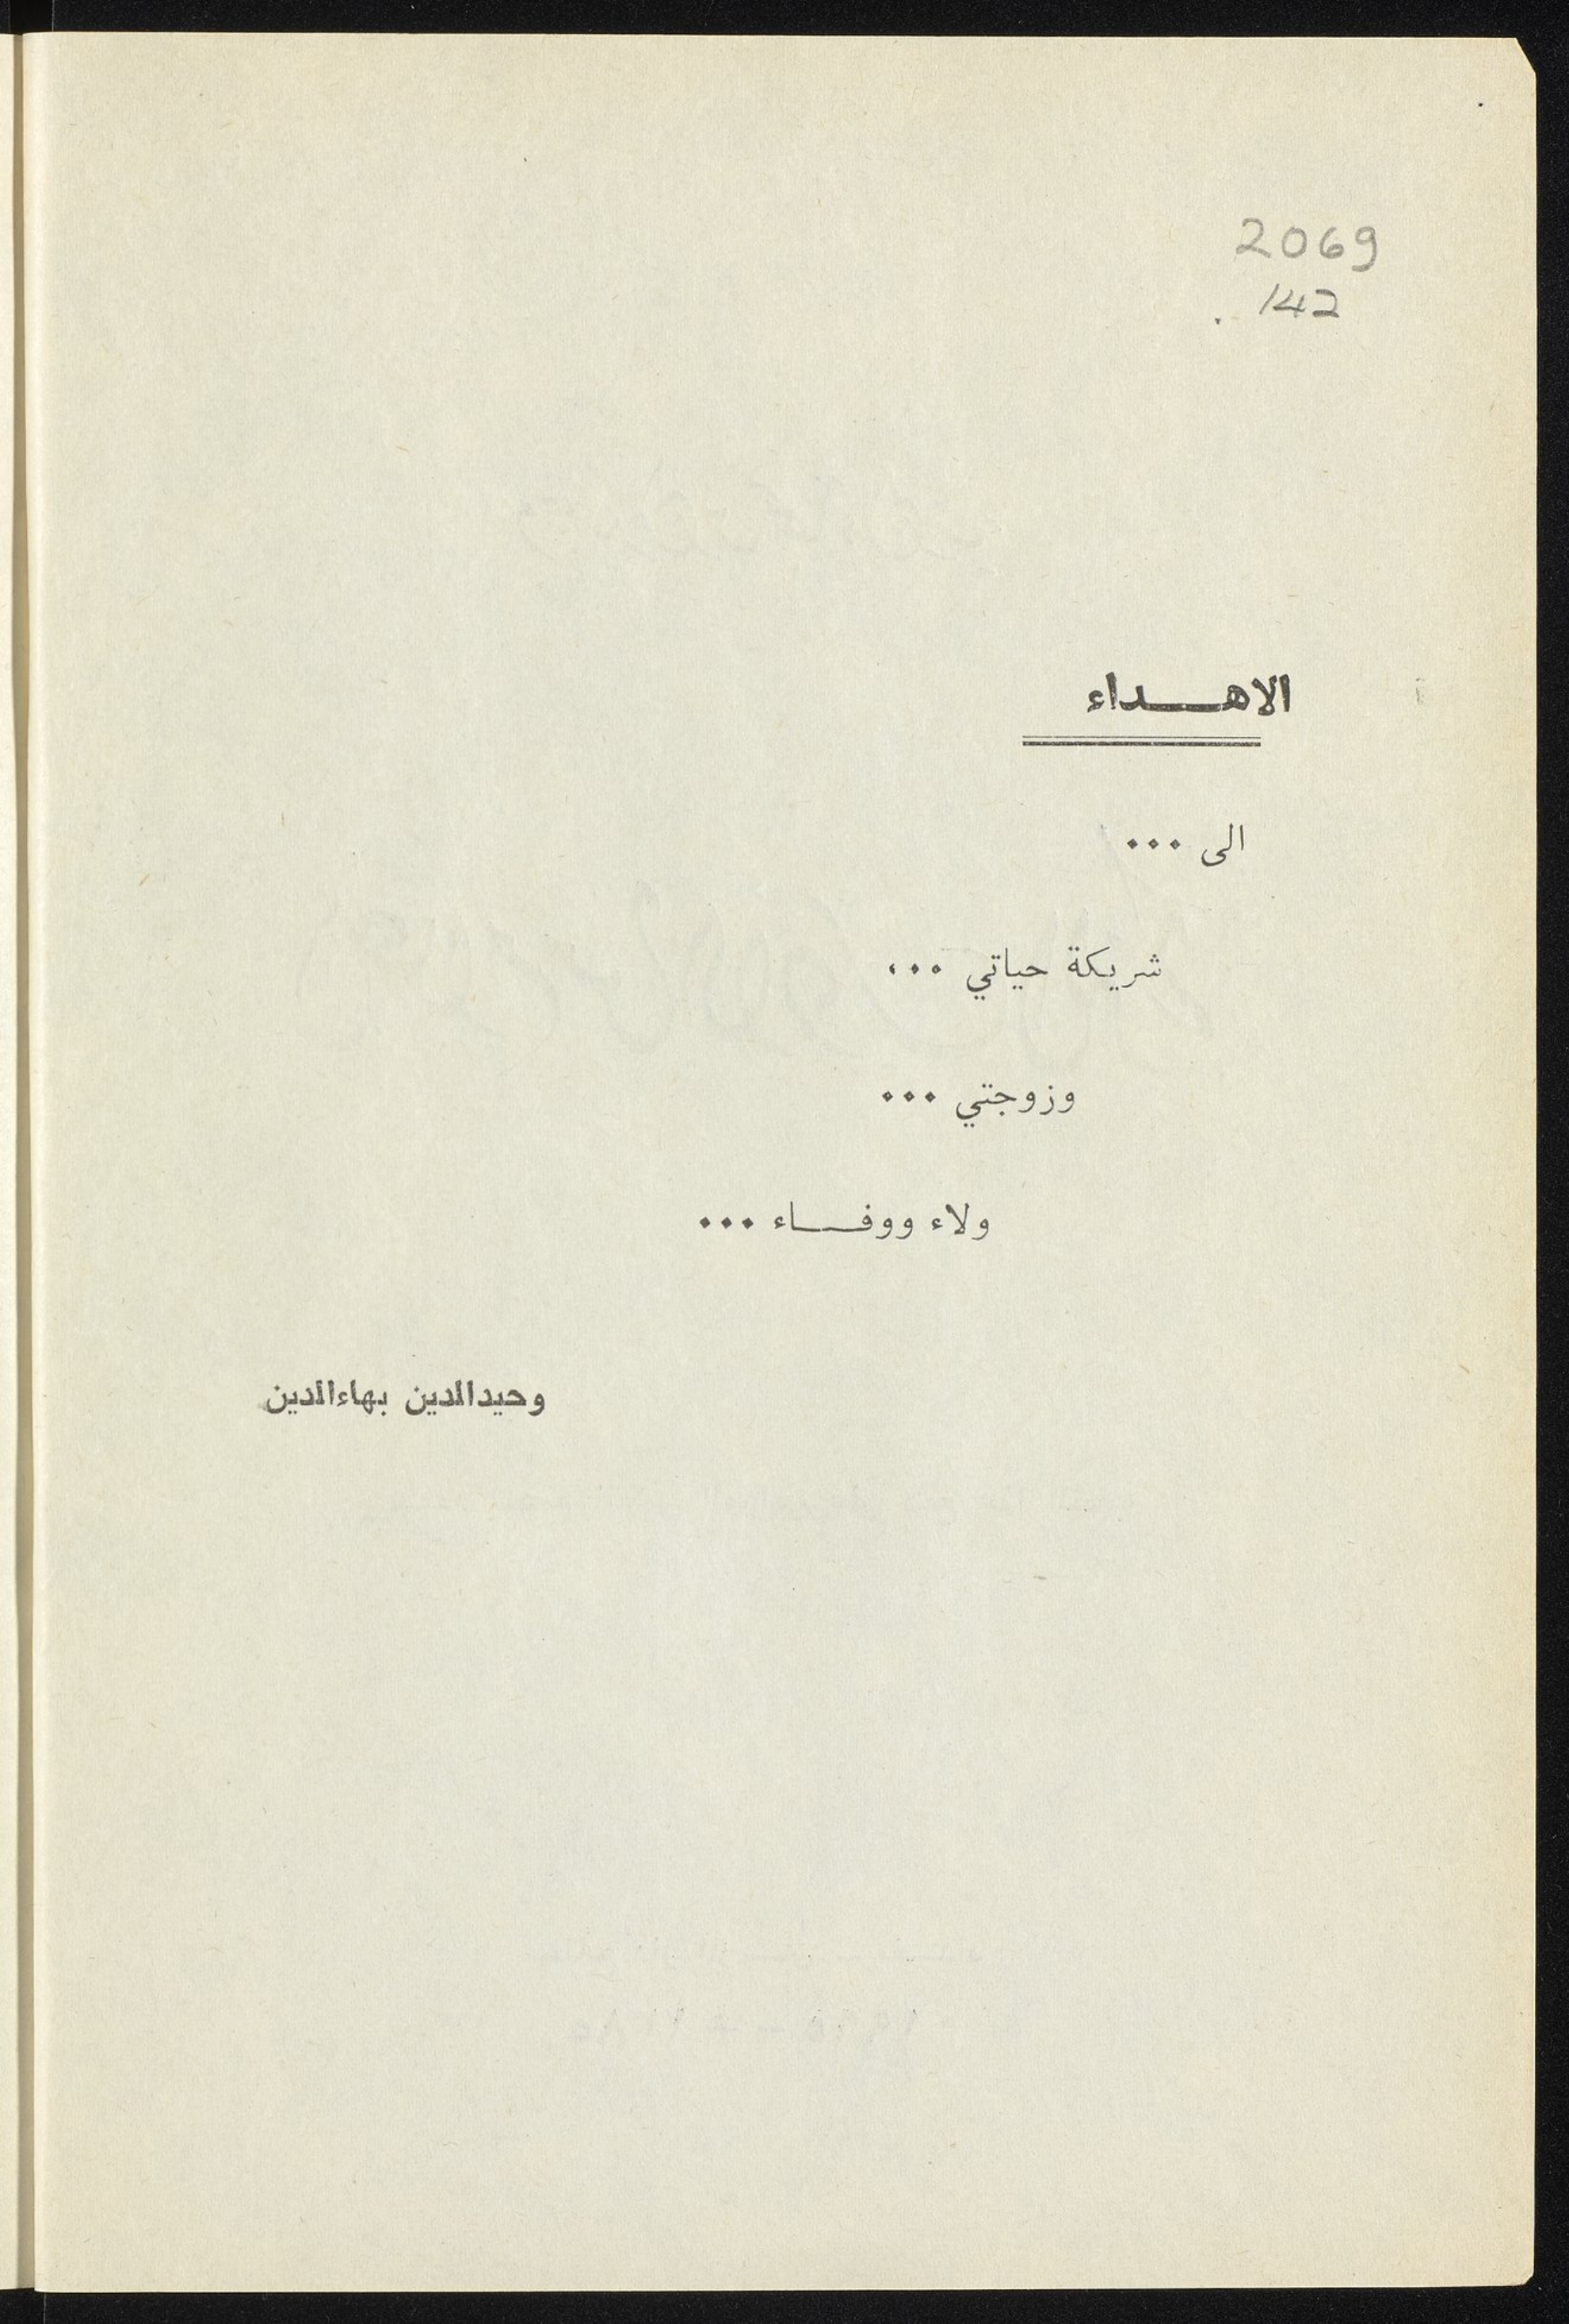 2069
.142
الاهداء
الى ...
شريكة حياتي ...
وزوجتي ...
ولاء ووفاء ...
وحيدالدين بهاءالدين